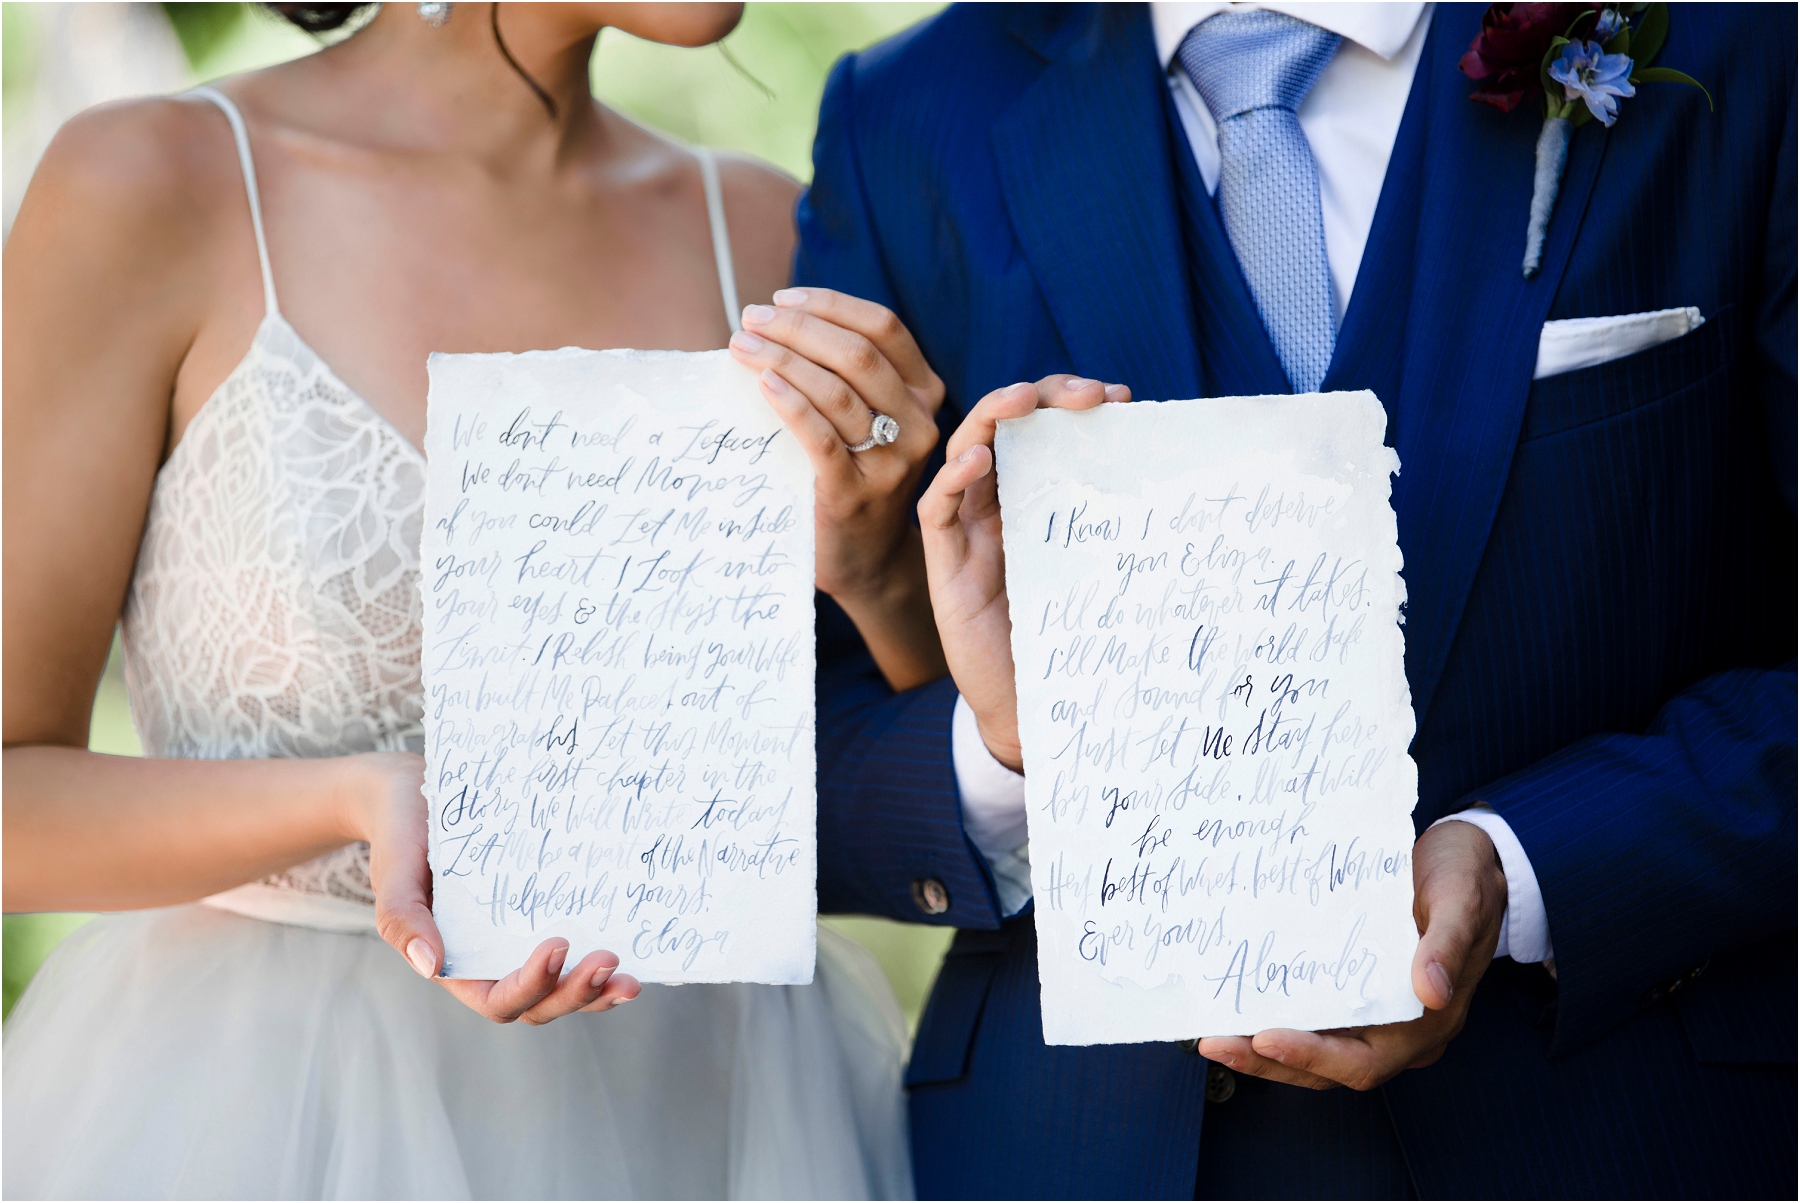 We don't need a Legacy
We don't need Money
if you could Let Me inside
your heart. I Look into
your eyes & the sky's the
Limit. I Relish being your Wife.
you built Me Palaces out of
Paragraphs Let this Moment
be the first chapter in the
Story We Will Write today
Let Me be a part of the Narrative
Helplessly yours.
Eliza
I Know I don't deserve
you Eliza.
I'll do whatever it takes.
I'll Make the World Safe
and Sound for you
Just Let Me Stay here
by your side. that Will
be enough
Hey best of Wives. best of Women
Ever yours.
Alexander